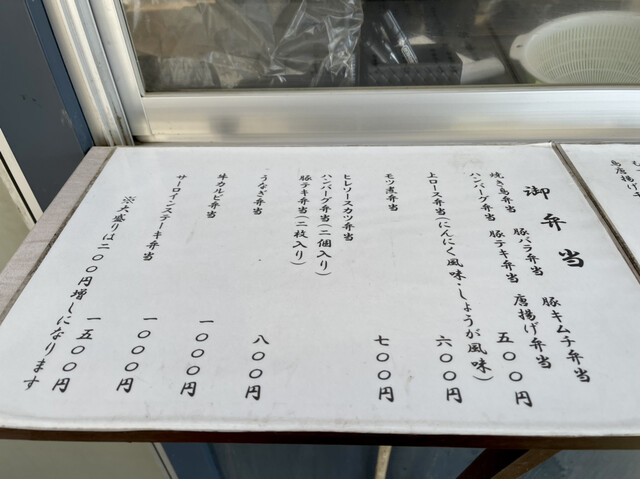 御弁当
焼き鳥弁当 豚バラ弁当 豚キムチ弁当
ハンバーグ弁当 豚テキ弁当 唐揚げ弁当 五〇〇円
上ロース弁当(にんにく風味・しょうが風味) 六〇〇円
モツ煮弁当 七〇〇円
ヒレソースカツ弁当
ハンバーグ弁当(二個入り)
豚テキ弁当(二枚入り) 八〇〇円
うなぎ弁当 一〇〇〇円
牛カルビ弁当 一〇〇〇円
サーロインステーキ弁当 一五〇〇円
※大盛りは二〇〇円増しになります
鳥唐揚げ